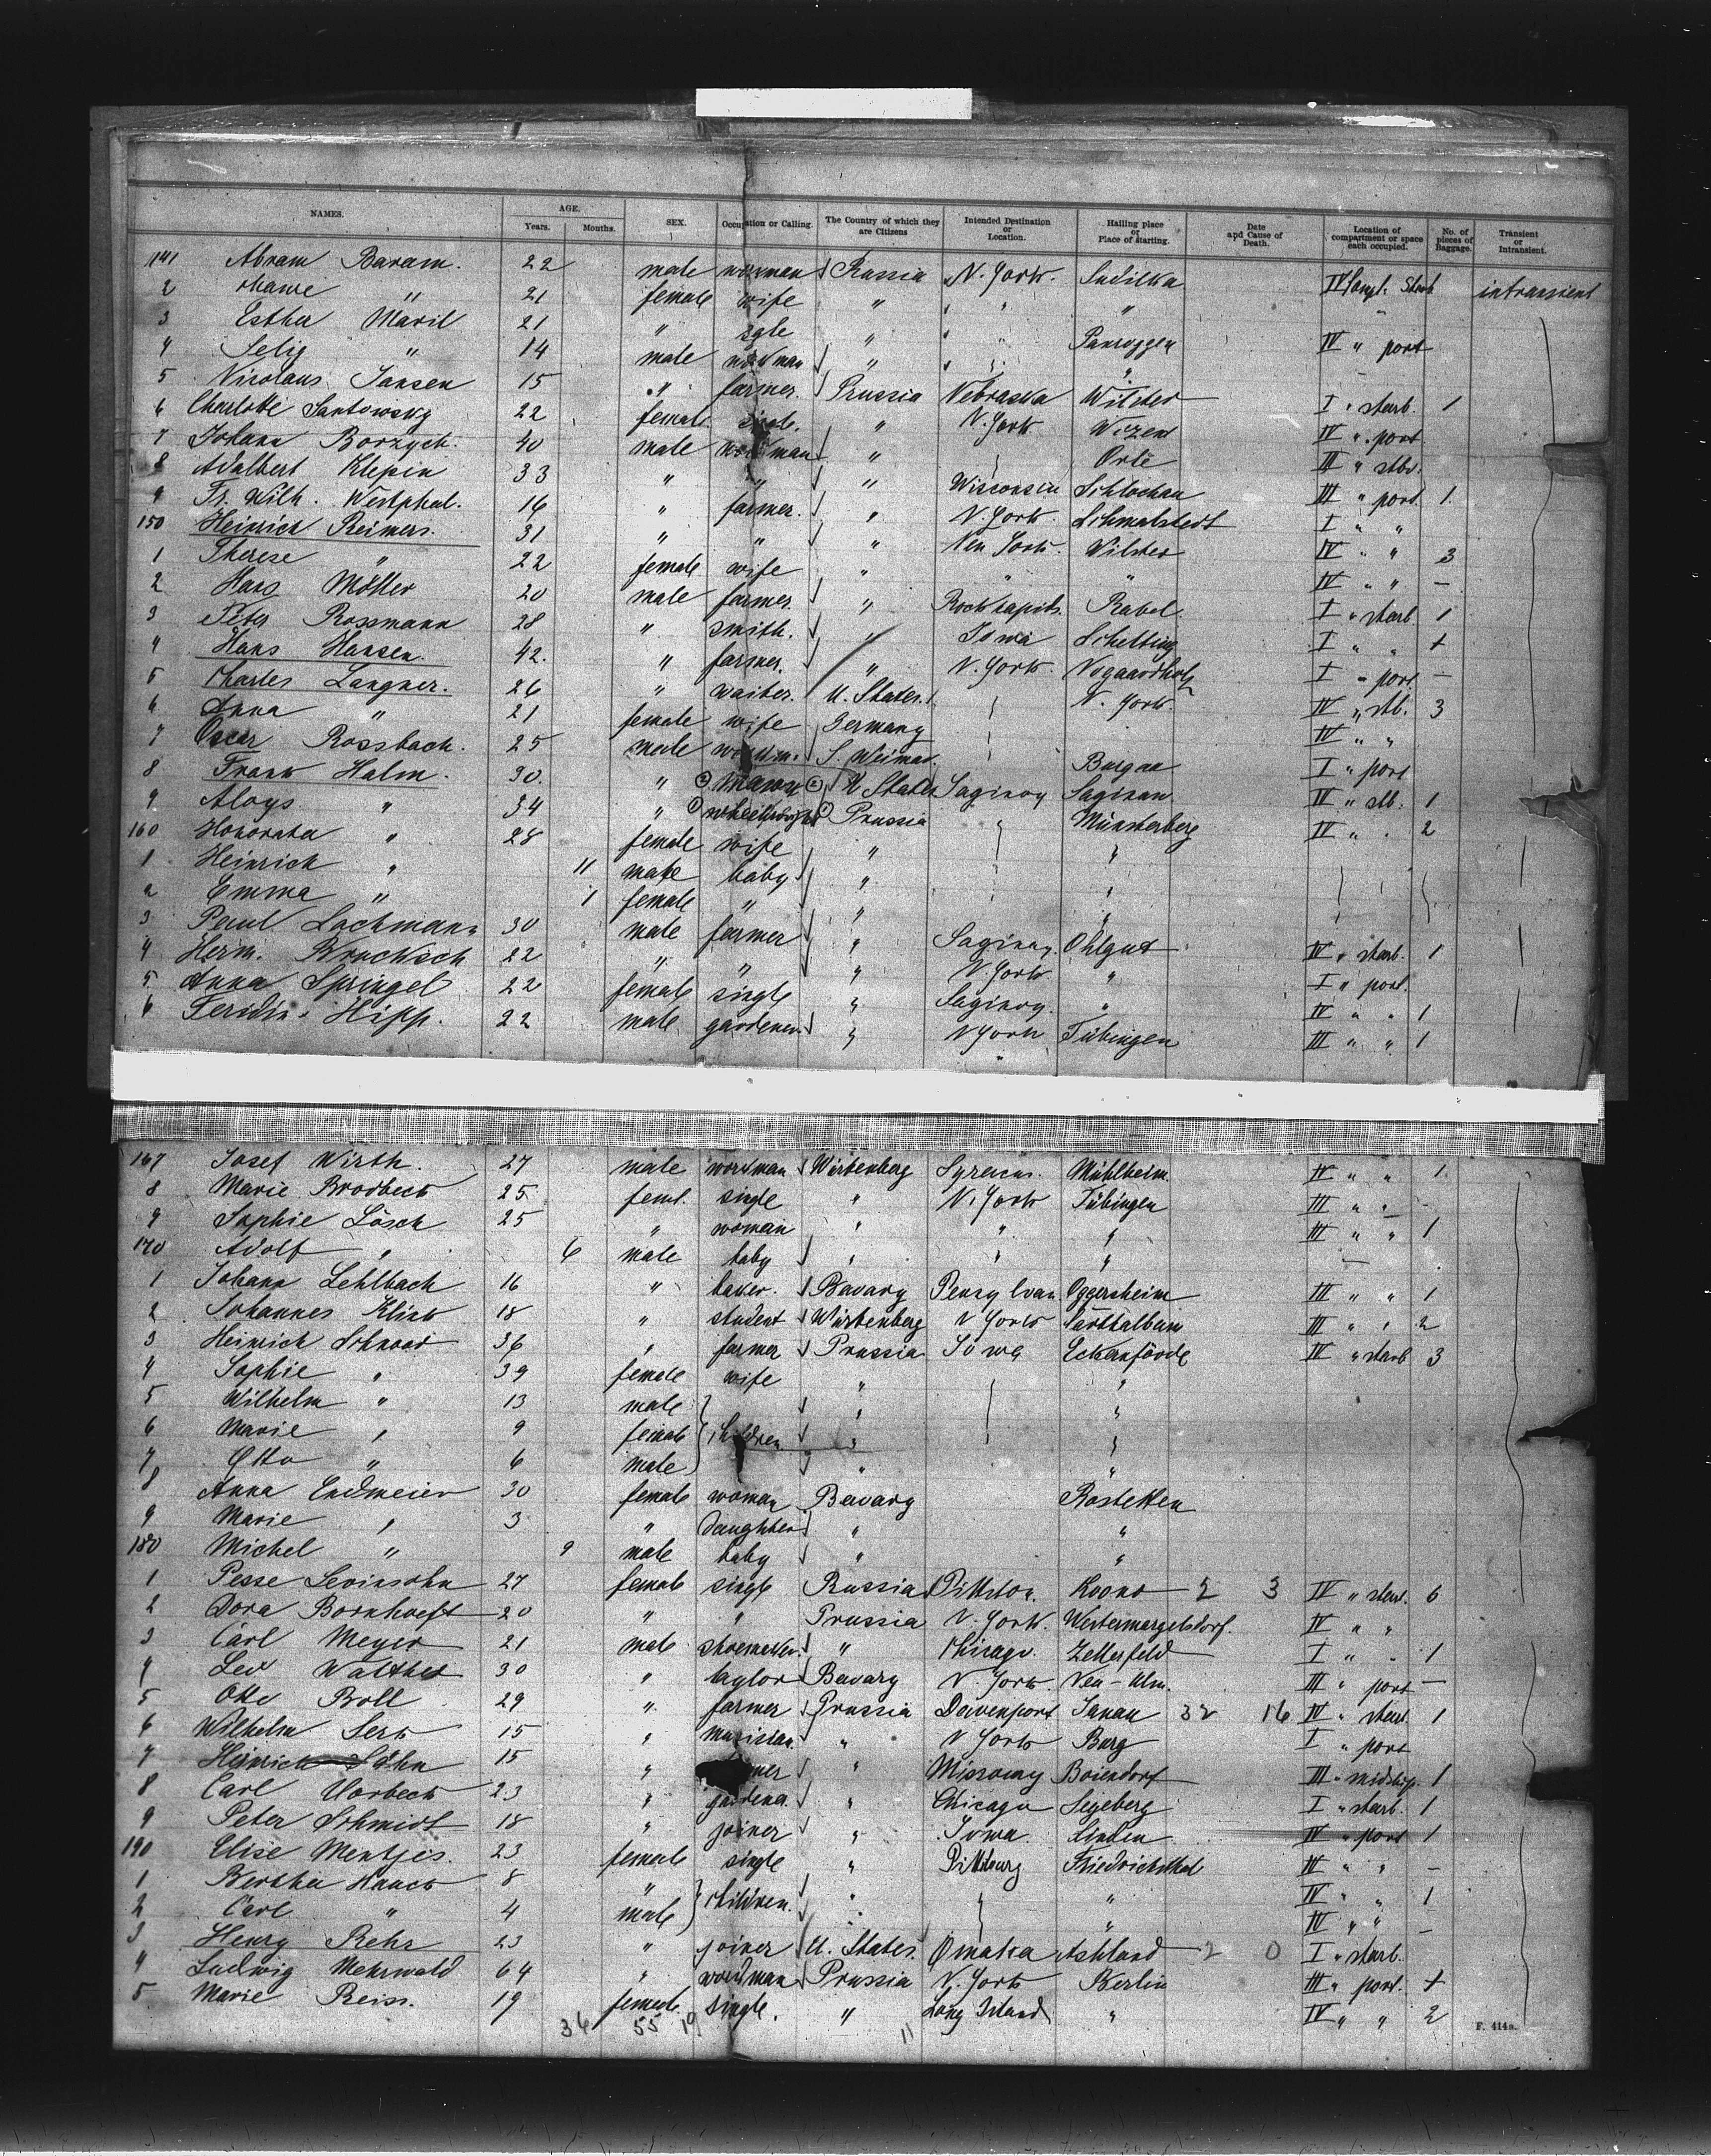 NAMES. AGE. Years. Months. SEX. Occupation or Calling. The Country of which they are Citizens Intended Destination or Location. Hailing place or Place of starting. Date and Cause of Death. Location of compartment or space each occupied. No. of pieces of Baggage. Transient or Intransient.
141 Abram Baram. 22 male workman Russia N. York. Sudilka IV Starb intransient
2 " 21 female wife " " "
3 Esther Maril 21 " sgle " " IV " port
4 Selig " 14 male workman " " "
5 Nicolaus Jansen 15 " farmer. Prussia Nebraska Wilster I " starb. 1
6 Charlotte Santowsky 22 female single. " N. York IV " port
7 Johann Borzych. 40 male workman " III " stb.
8 Adalbert Klepin 33 " " " Wisconsin Schlochau III " port. 1
9 Fr. Wilh. Westphal. 16 " farmer. " N. York. Schmalstedt I " "
150 Heinrich Reimers. 31 " " " New York. Wilster IV " " 3
1 Therese " 22 female wife " " " IV " " —
2 Hans Möller 20 male farmer. " Rockrapids. Rabel. I " starb. 1
3 Peter Rossmann 28 " smith. " Iowa I " " +
4 Hans Hansen. 42. " farmer. " N. York. I " port —
5 Charles Langner. 26 " waiter. U. States. N. York. IV " stb. 3
6 Anna " 21 female wife Germany IV " "
7 Oscar Rossbach. 25 male workm. S. Weimar. Burgau I " port
8 Frank Halm. 30. " mason U States Saginoy Saginaw IV " stb. 1
9 Aloys " 34 " wheelwright Prussia " Münsterberg IV " " 2
160 Honorata " 28 female wife " "
1 Heinrich " 11 male baby "
2 Emma " 1 female " " "
3 Paul Lachmann 30 male farmer " Saginoy. Ohlgut IV " starb. 1
4 Herm. Brucksch 22 " " " N. York " I " port.
5 Anna Springel 22 female single " Saginoy. " IV " " 1
6 Ferdin. Hipp. 22 male gardener. " N York Tübingen III " " 1
167 Josef Wirth. 27 male workman Wirtenberg Syracus. Mühlheim. IV " " 1
8 Marie Brodbeck 25 feml. single " N. York Tübingen III " " -
9 Sophie Lösch 25 " woman " " " III " " 1
170 Adolf " 6 male baby " " " —
1 Johann Lehlbach 16 " baker. Bavary Pensylvan Oggersheim III " " 1
2 Johannes Klink 18 " student Wirtenberg N York III " " 2
3 Heinrich Schnoor 36 " farmer Prussia Iowa Eckernförde IV " starb 3
4 Sophie " 39 female wife " "
5 Wilhelm " 13 male " "
6 Marie " 9 female children " "
7 Otto " 6 male " "
8 Anna Endmeier 30 female woman Bavary Rostetten
9 Marie " 3 " daughter " "
180 Michel " 9 male baby " "
1 Pesse Levinsohn 27 female single Russia Pittston. Kovno 2 3 IV " starb. 6
2 Dora Bornhoeft 20 " " Prussia N. York. Westermargelsdorf. IV " "
3 Carl Meyer 21 male shoemaker. " Chicago. Zellerfeld I " " 1
4 Leo Walther 30 " taylor Bavary N. York. Neu-Ulm. III " port —
5 Otto Boll 29 " farmer Prussia Davenport 32 16 IV " starb. 1
6 Wilhelm Serk 15 " musician. " N York Burg I " port
7 Heinrich 15 " " Boiendorf III " midship. 1
8 Carl Horbeck 23 " gardener. " Chicago Segeberg I " starb. 1
9 Peter Schmidt 18 " joiner " Iowa. Linden IV " port 1
190 Elise Mentjes. 23 female single " Pittsburg Friedrichsthal IV " " —
1 Bertha Hauck 8 " children. " " " IV " " 1
2 Carl " 4 male " " IV " " —
3 Henry Rehr 23 " joiner U. States. Omaka Ashland 2 0 I " starb.
4 Ludwig Mehrwald 64 " workman Prussia N. York Berlin III " port. +
5 Marie Reiss. 19 female single. " Long Island " IV " " 2
36 55 19 11 F. 414a.